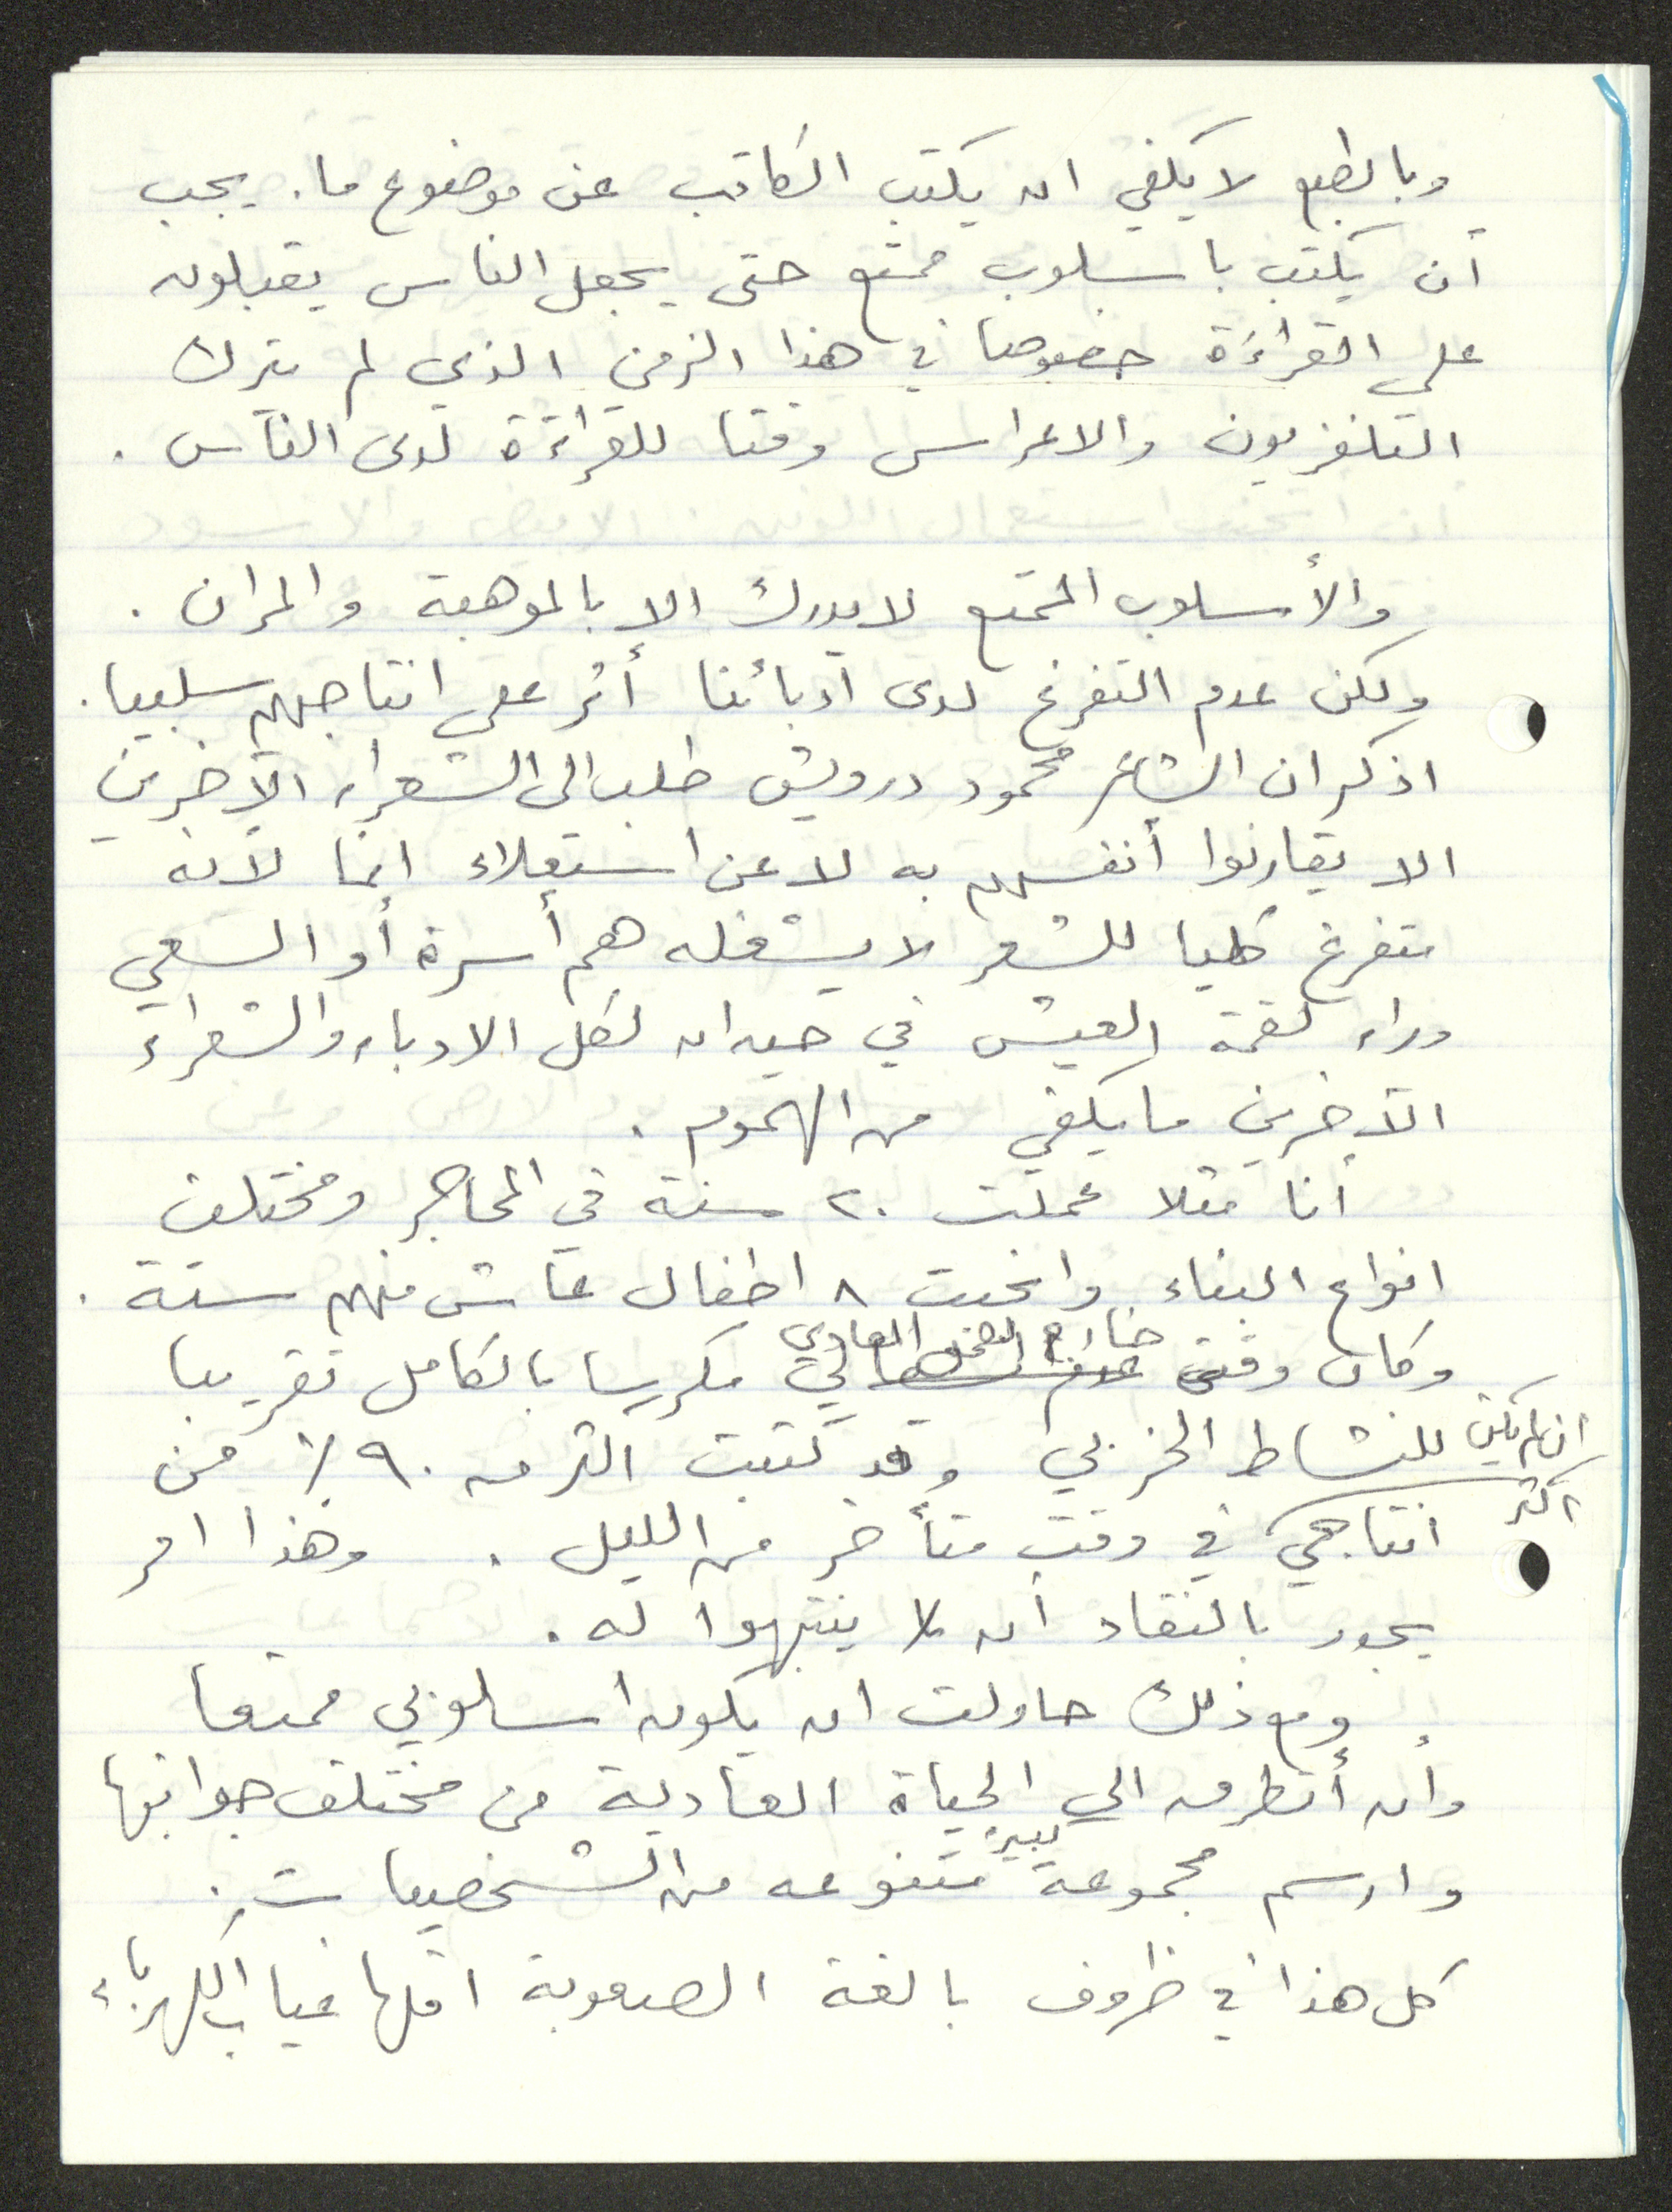 وبالطبع لا يكفي ان يكتب الكاتب عن موضوع ما. يجب
أن يكتب باسلوب ممتع حتى يجعل الناس يقبلون
على القراءة خصوصا في هذا الزمن الذي لم يترك
التلفزيون والاعراس وقتا للقراءة لدى الناس .
والأسلوب الممتع لا يدرك الا بالموهبة والمران .
ولكن عدم التفرغ لدى ادبائنا أثر على انتاجهم سلبيا .
اذكر ان الشاعر محمود درويش طلب الى الشعراء الآخرين
الا يقارنوا أنفسهم به لا عن استعلاء انما لأنه
متفرغ كليا للشعر لا يشغله هم أسرة أو السعي
وراء لقمة العيش في حين ان لكل الادباء والشعراء
الآخرين ما يكفي من الهموم .
أنا مثلا عملت ٢٠ سنة في المحاجر ومختلف
انواع البناء وانجبت ٨ اطفال عاش منهم ستة .
خارج العمل العادي
وكان وقتي مكرسا بالكامل تقريبا
ان لم يكن اكثر
للنشاط الحزبي وقد كتبت اكثر من ٩٠٪ من
انتاجي في وقت متأخر من الليل . وهذا امر
يجدر بالنقاد ان ينتبهوا له .
ومع ذلك حاولت ان يكون اسلوبي ممتعا
وأن أتطرق الى الحياة العادية من مختلف جوانبها
وارسم مجموعة كبيرة متنوعه من الشخصيات .
كل هذا في ظروف بالغة الصعوبة اقلها غياب الكهرباء